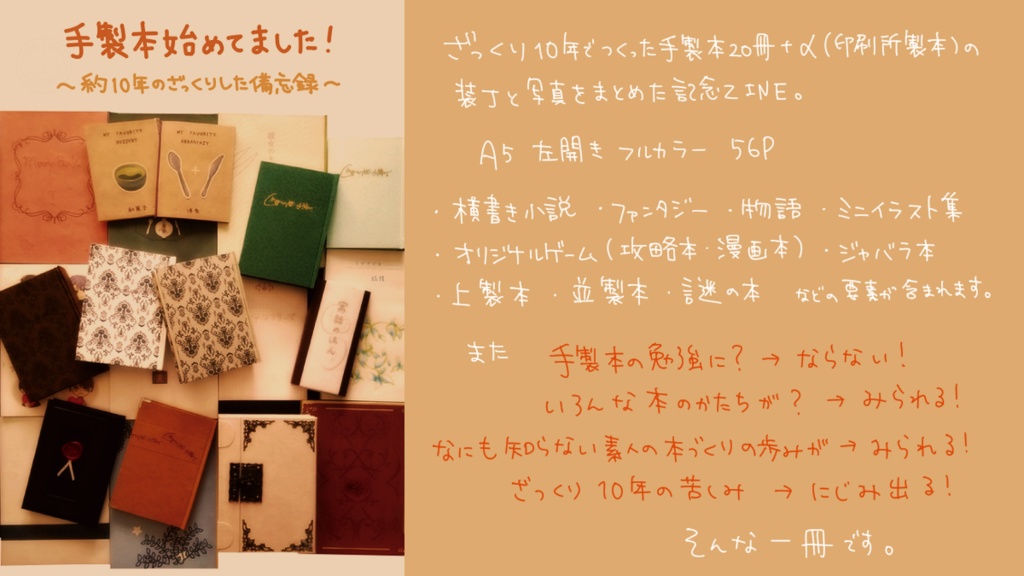 手製本始めてました!
~約10年のざっくりした備忘録~
MY FAVORITE
MY FAVORITE
BREAKFAST
和菓子
洋食
ざっくり10年でつくった手製本20冊+α(印刷所製本)の
装丁と写真をまとめた記念ZINE。
A5 左開き フルカラー 56P
・横書き小説 ・ファンタジー ・物語 ・ミニイラスト集
・オリジナルゲーム(攻略本・漫画本) ・ジャバラ本
・上製本 ・並製本 ・謎の本 などの要素が含まれます。
また 手製本の勉強に? → ならない!
いろんな本のかたちが? → みられる!
なにも知らない素人の本づくりの歩みが → みられる!
ざっくり10年の苦しみ → にじみ出る!
そんな一冊です。